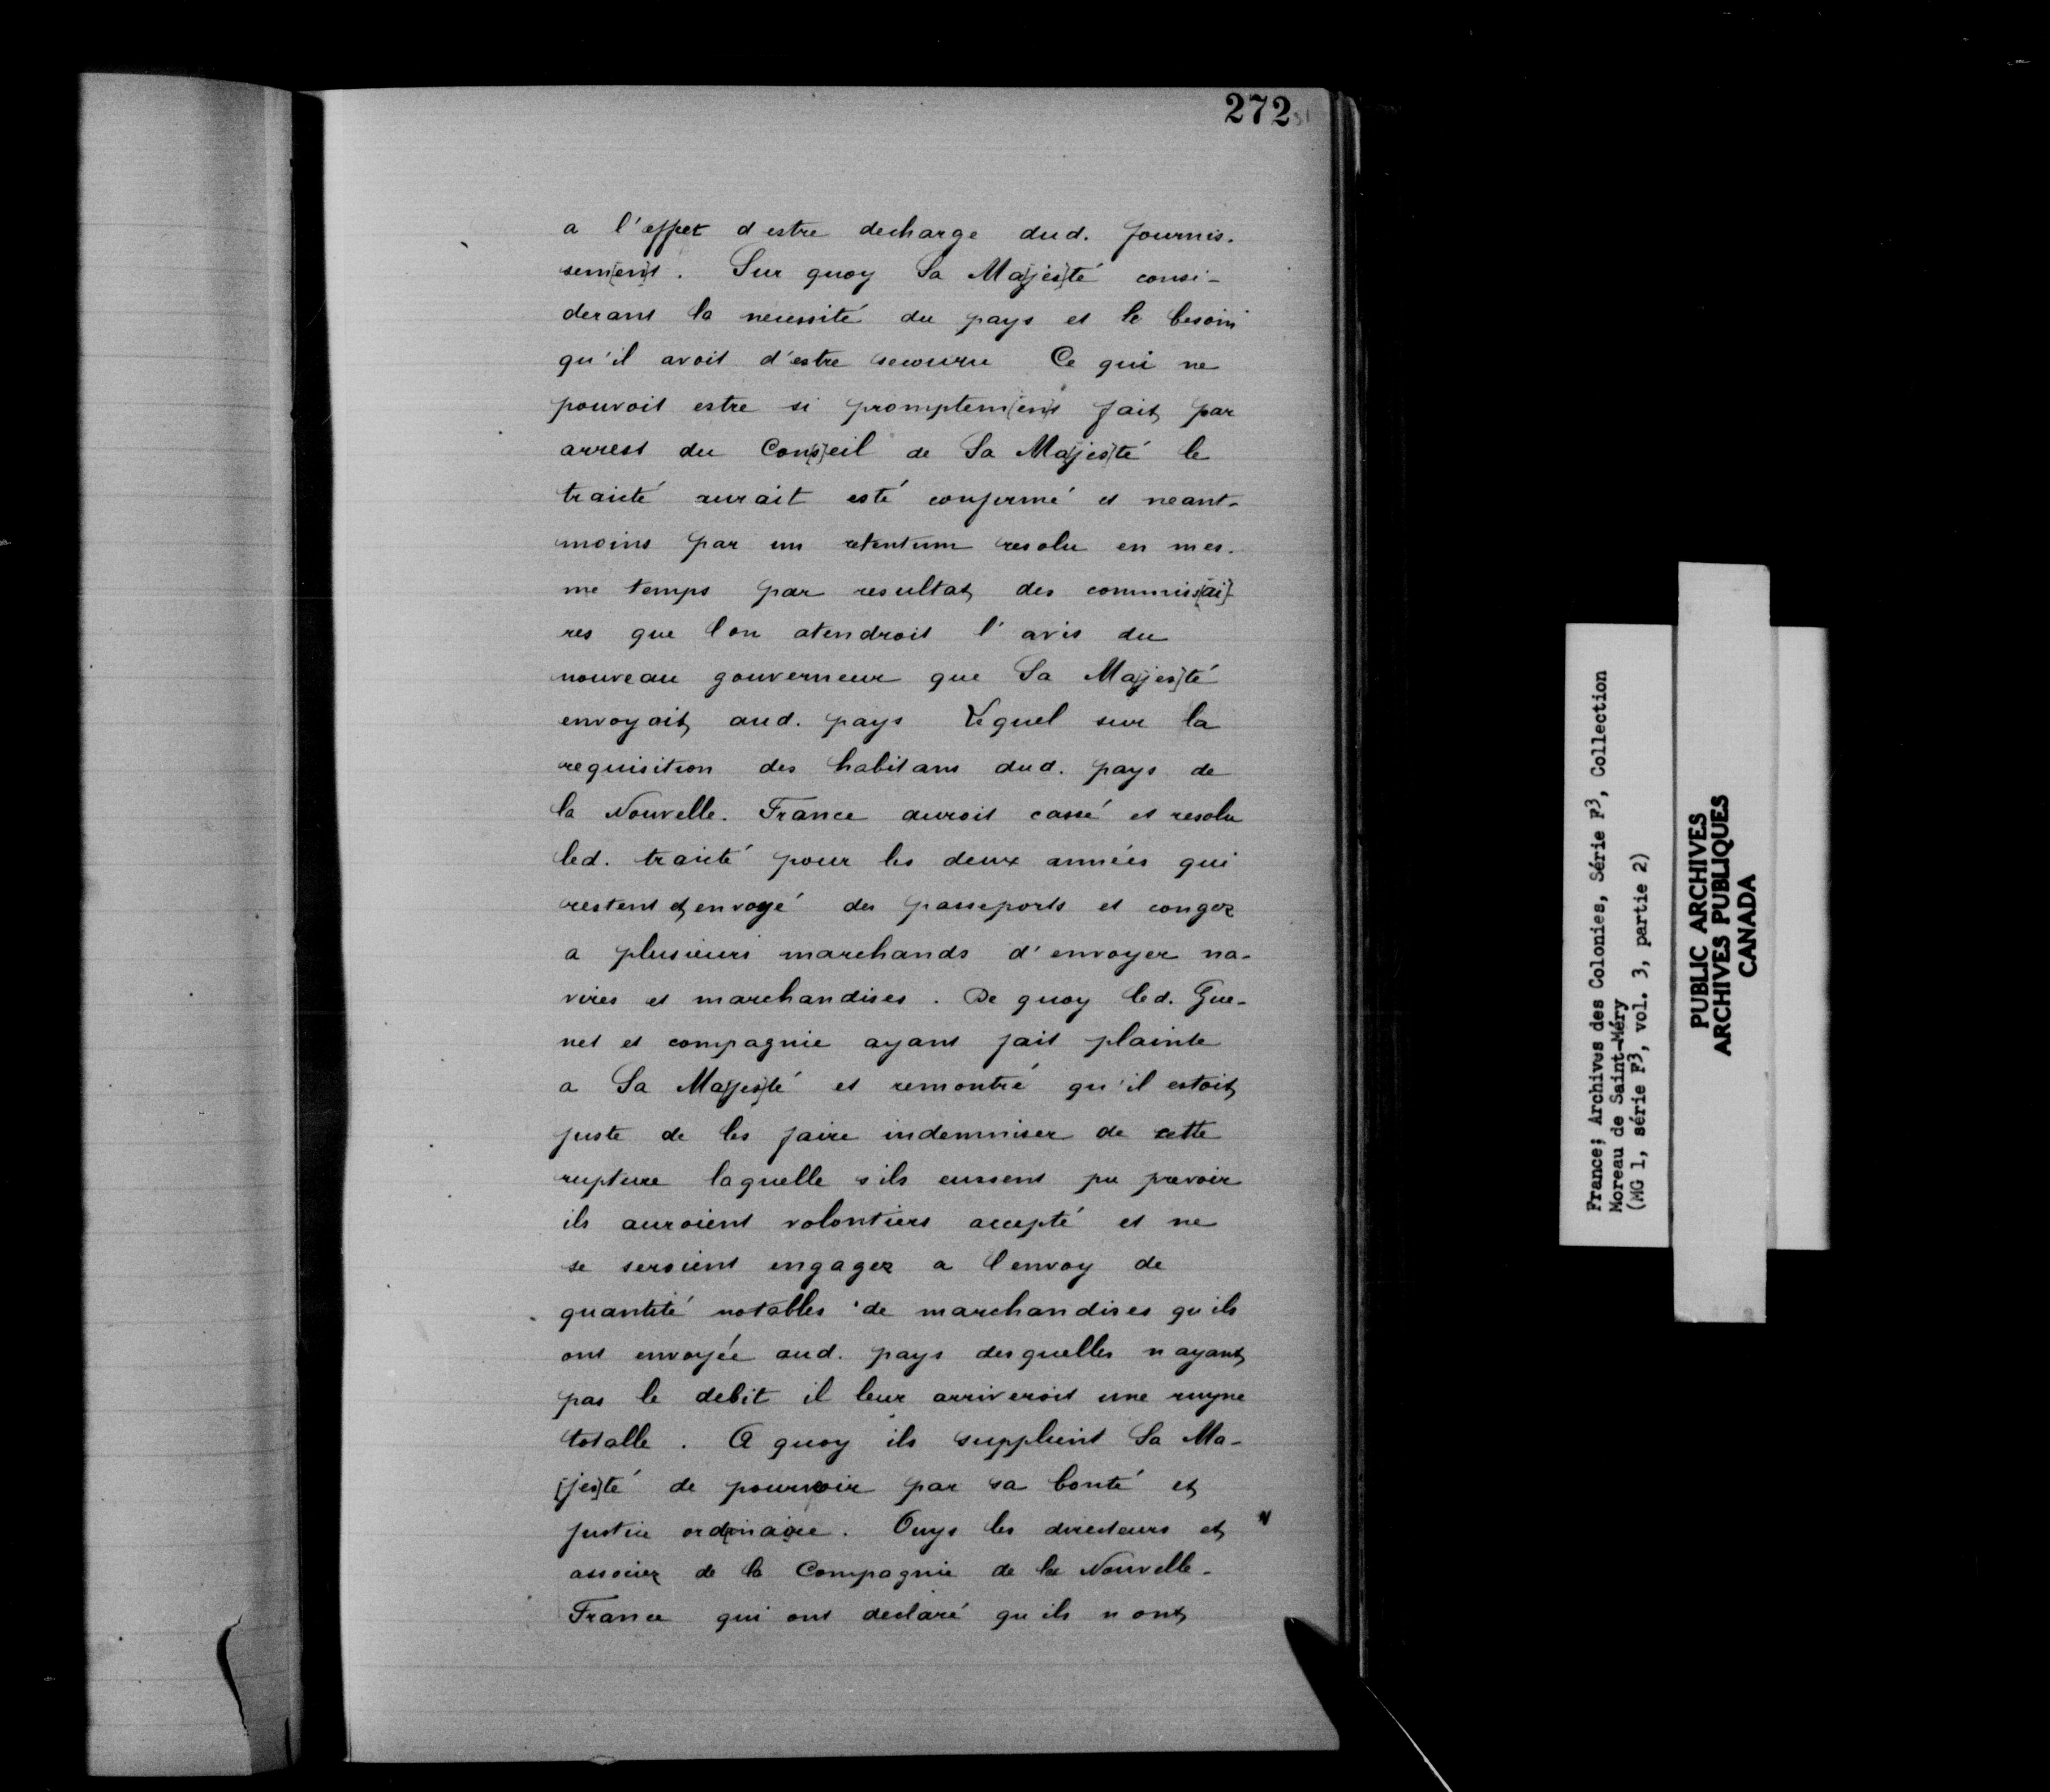 272
a l'effet d estre decharge dud. fournis-
sem[en]t. Sur quoy Sa Ma[jes]té consi-
derant la necessité du pays et le besoin
qu'il avoit d'estre secouru Ce qui ne
pouvoit estre si promptem[en]t fait par
arrest du Con[s]eil de Sa Ma[jes]té le
traicté aurait esté confirmé et neant-
moins par un retentum resolu en mes-
me temps par resultat des commiss[ai]-
res que l'on atendroit l'avis du
nouveau gouverneur que Sa Ma[jes]té
envoyoit aud. pays Lequel sur la
requisition des habitans dud. pays de
la Nouvelle-France auroit cassé et resolu
led. traicté pour les deux années qui
restent et envoyé des passeports et congez
a plusieurs marchands d'envoyer na-
vires et marchandises. De quoy led. Gue-
net et compagnie ayant fait plainte
a Sa Ma[jes]té et remontré qu'il estoit
juste de les faire indemniser de cette
rupture laquelle s ils eussent pu prevoir
ils auroient volontiers accepté et ne
se seroient engagez a l'envoy de
quantité notables de marchandises qu ils
ont envoyée aud. pays desquelles n ayant
pas le debit il leur arriveroit une ruyne
totalle. A quoy ils supplient Sa Ma-
[jes]té de pourvoir par sa bonté et
justice ord[inai]re. Ouys les directeurs et
associez de la Compagnie de la Nouvelle-
France qui ont declaré qu ils n ont
France; Archives des Colonies, Série F3, Collection
Moreau de Saint-Méry
(MG 1, série F3, vol. 3, partie 2)
PUBLIC ARCHIVES
ARCHIVES PUBLIQUES
CANADA